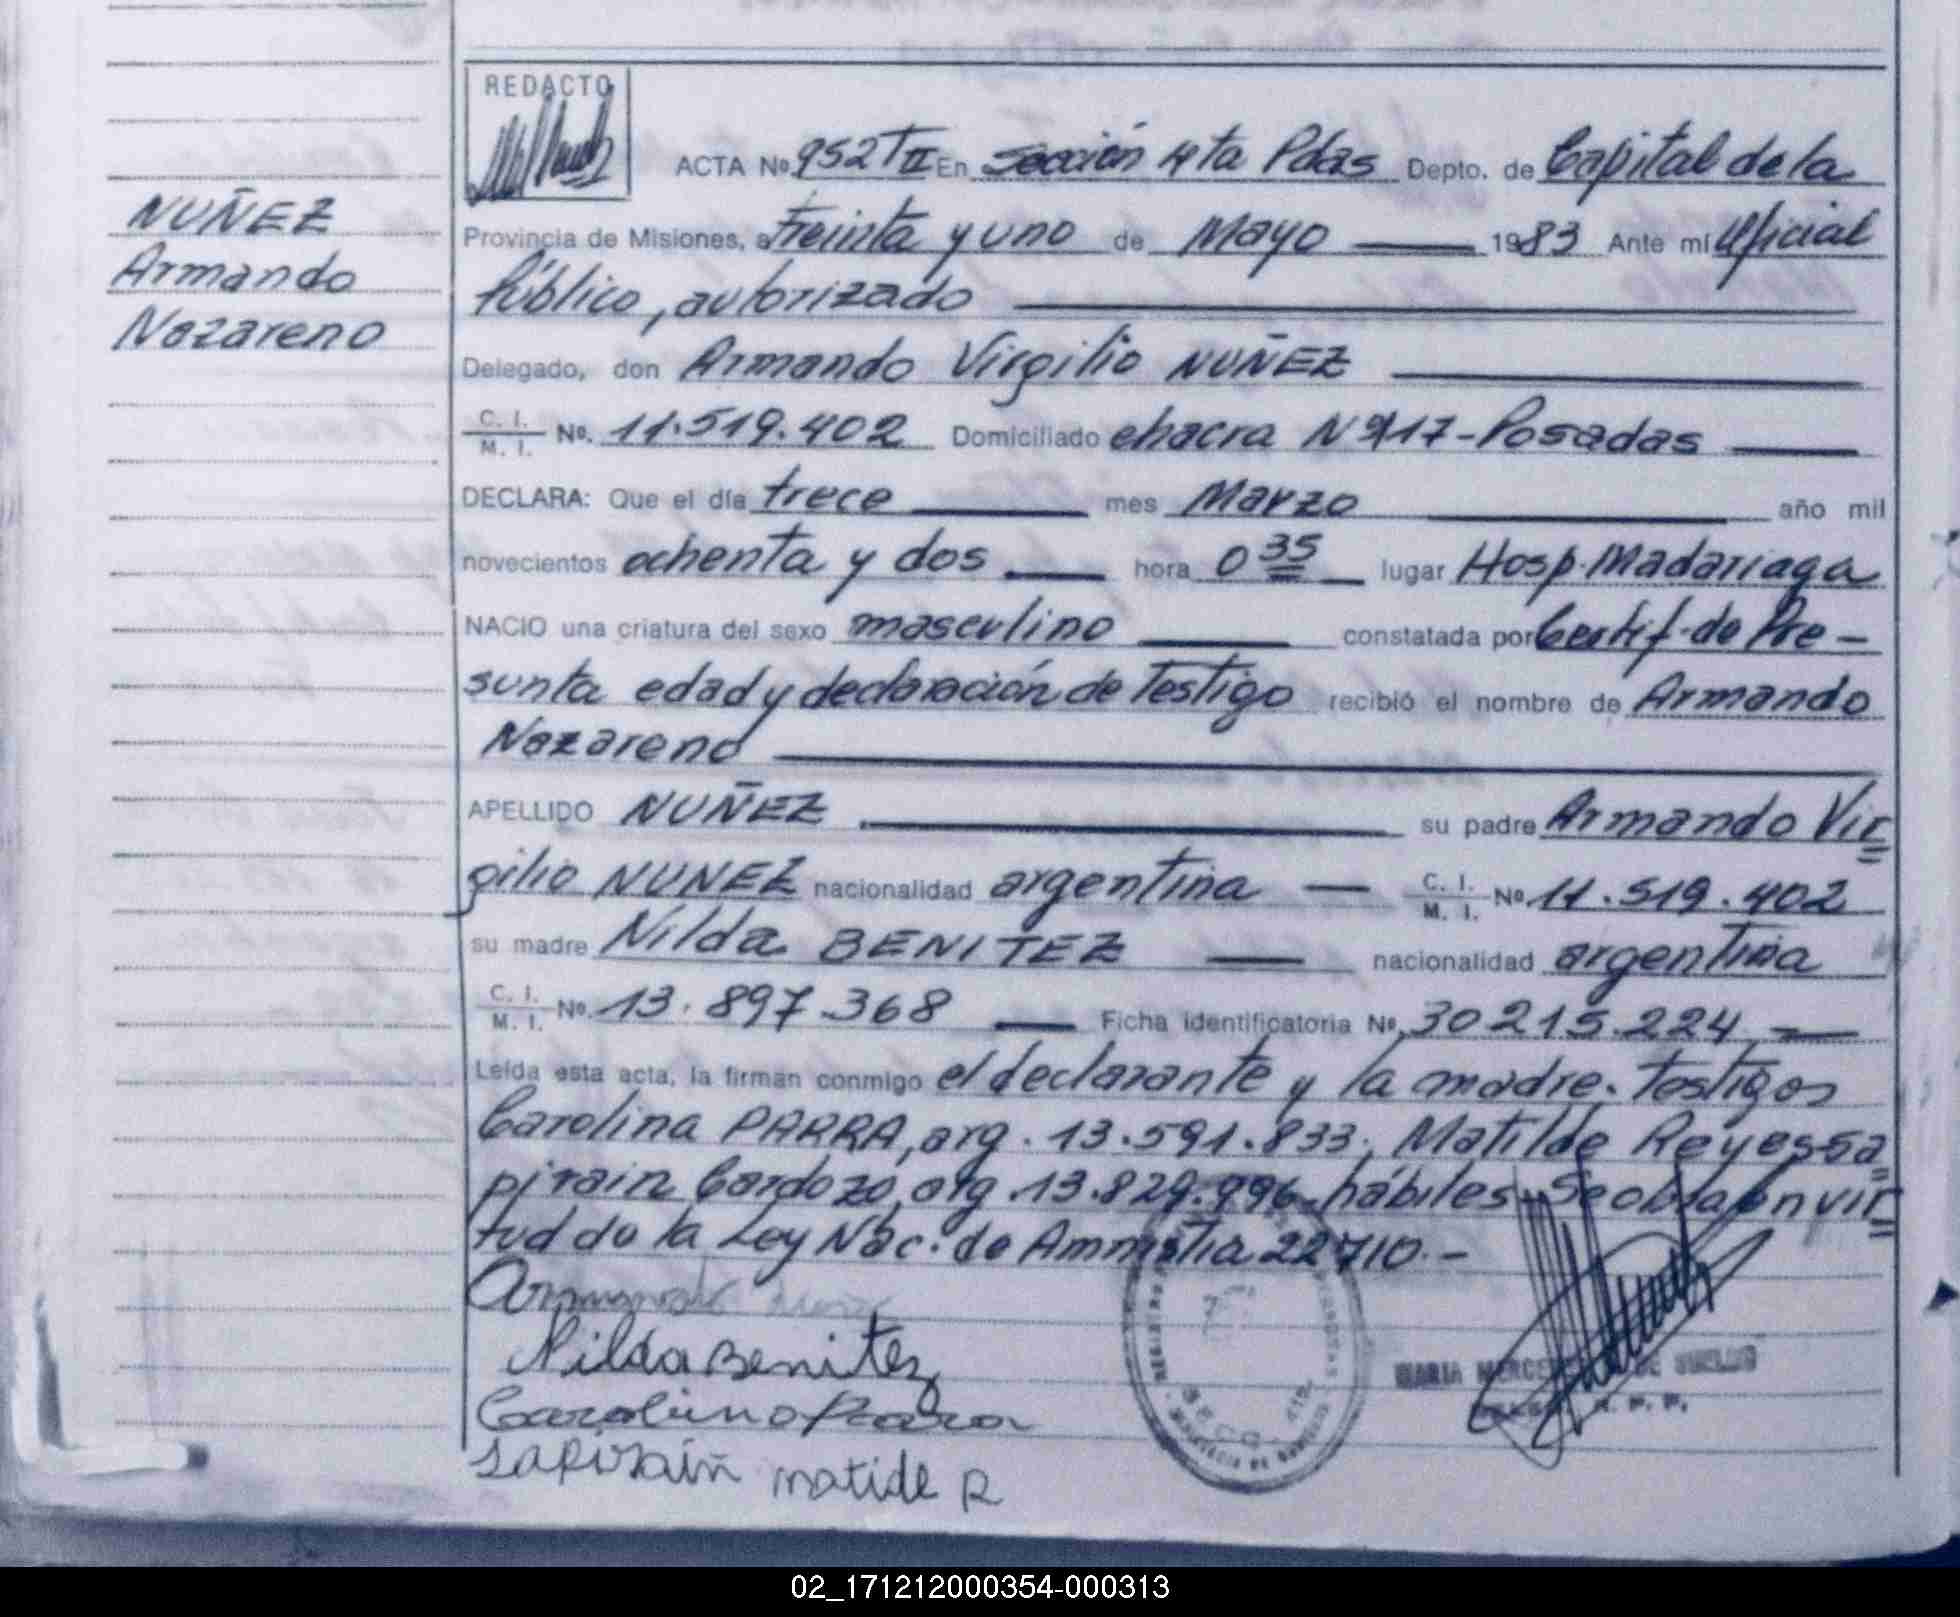 REDACTO
ACTA Nº 952 T II En Sección 4ta Pdas Depto. de Capital de la
NUÑEZ
Armando
Nazareno
Provincia de Misiones, a Treinta y uno de Mayo 1983 Ante mí Oficial
Público, autorizado
Delegado, don Armando Virgilio NUÑEZ
C. I.
M. I. Nº. 11.519.402 Domiciliado chacra Nº 117 - Posadas
DECLARA: Que el día trece mes Marzo año mil
novecientos ochenta y dos hora 0 35 lugar Hosp. Madariaga
NACIO una criatura del sexo masculino constatada por Certif. de Pre-
sunta edad y declaración de Testigo recibió el nombre de Armando
Nazareno
APELLIDO NUÑEZ su padre Armando Vir
gilio NUNEZ nacionalidad argentina C. I.
M. I. Nº 11.519.402
su madre Nilda BENITEZ nacionalidad argentina
C. I.
M. I. Nº. 13.897.368 Ficha identificatoria Nº 30215.224
Leída esta acta, la firman conmigo el declarante y la madre. Testigos
Carolina PARRA, arg. 13.591.833, Matilde Reyes Sa
pirain Cardozo, arg. 13.829.996 hábiles. Se obla en vir
tud de la Ley Nac. de Ammistia 22710.-
Armando
Nilda Benitez
Carolina Parra
Sapirain matide R
02_171212000354-000313